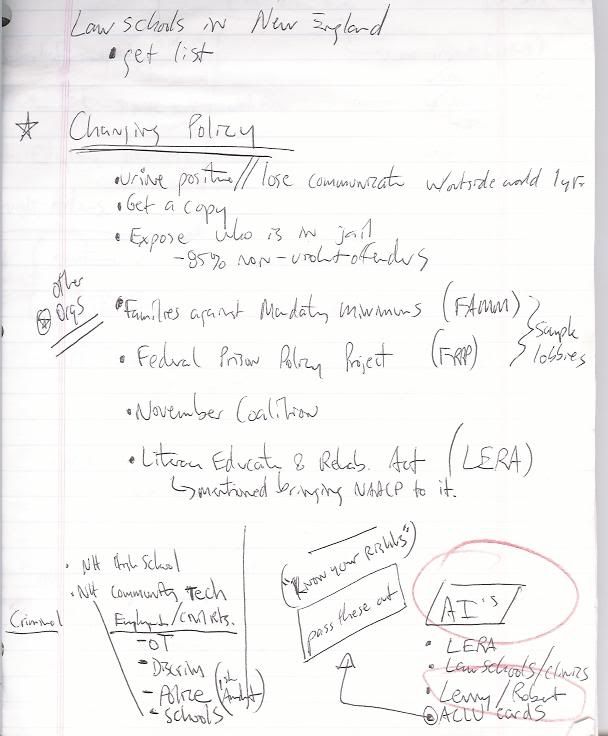 Law schools in New England
• get list
Changing Policy
• urine positive // lose communicate w/outside world 1yr
• Get a copy
• Expose who is in jail
- 85% non-violent offenders
other
orgs
• Families against Mandatory minimums (FAMM)
• Federal Prison Policy Project (FPPP)
sample
lobbies
• November Coalition
• Literacy Educate & Rehab. Act (LERA)
mentioned bringing NAACP to it.
• NH High School
• NH Community Tech
Criminal
Employment/Civil Rts.
- OT
- Discrim
- Police (1st Amdt)
- Schools
"Know your Rights"
pass these out
AI's
• LERA
• Law schools/clinics
• Lenny/Robert
• ACLU cards